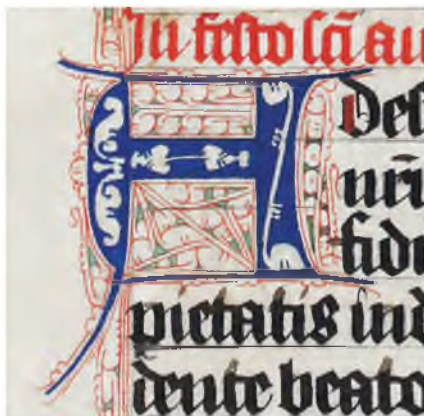 In festo sc̃i au
Ades
nr̃i
fidu
pietatis ind
dente beato